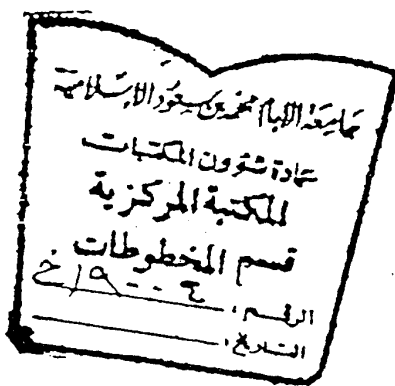 جامعة الإمام محمد بن سعود الإسلامية
عمادة شؤون المكتبات
المكتبة المركزية
قسم المخطوطات
الرقم :
التاريخ :